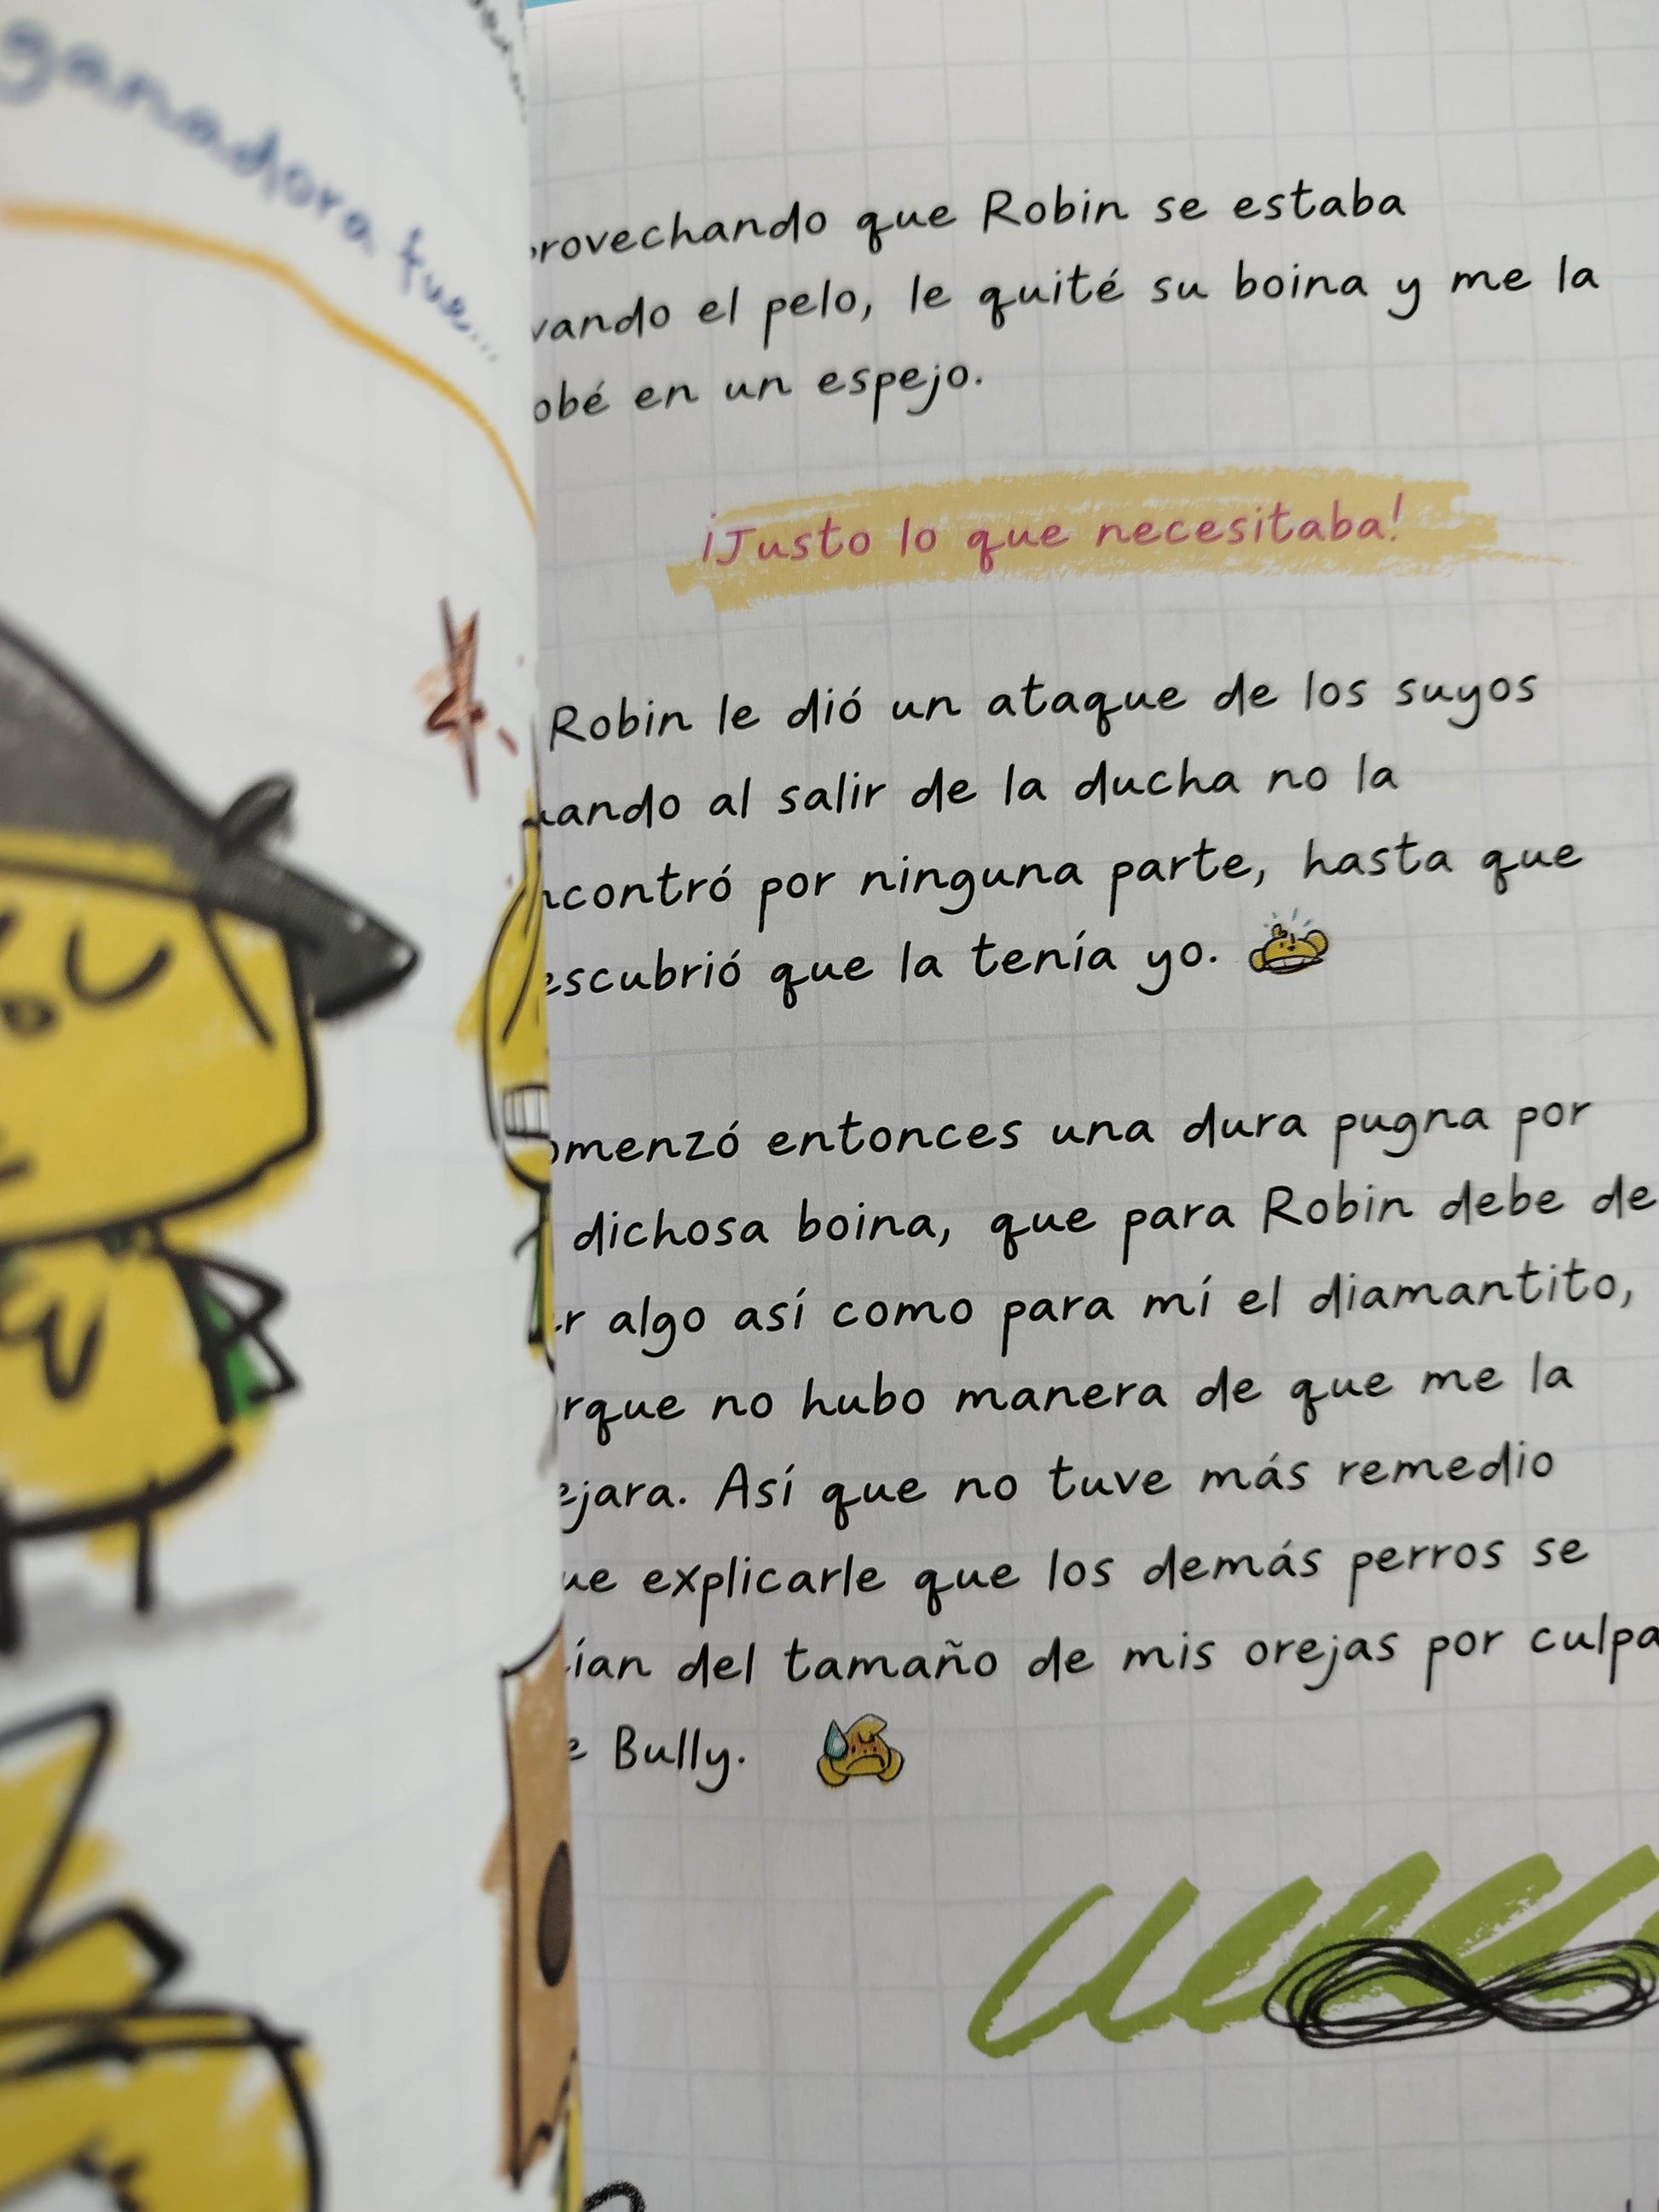 ganadora fue...
provechando que Robin se estaba
vando el pelo, le quité su boina y me la
obé en un espejo.
¡Justo lo que necesitaba!
Robin le dió un ataque de los suyos
uando al salir de la ducha no la
ncontró por ninguna parte, hasta que
escubrió que la tenía yo.
omenzó entonces una dura pugna por
dichosa boina, que para Robin debe de
er algo así como para mí el diamantito,
rque no hubo manera de que me la
ejara. Así que no tuve más remedio
ue explicarle que los demás perros se
ían del tamaño de mis orejas por culpa
e Bully.